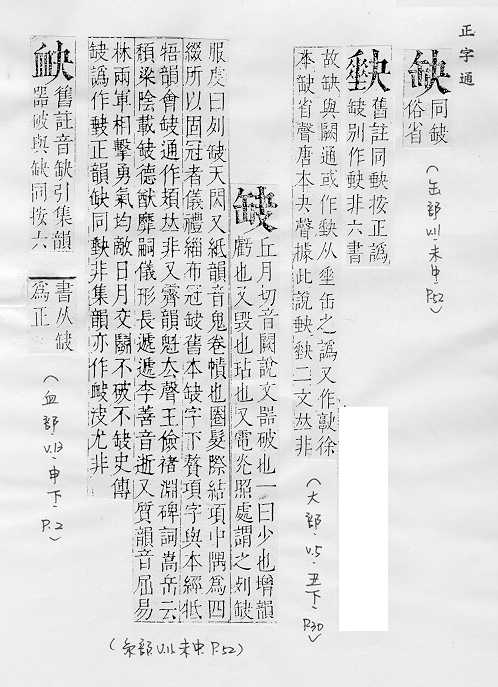 正字通
缺 同缺
俗省
(缶部 V.11 未中 P.52)
舊註同缺按正譌
缺別作䥝非六書
故缺與闕通或作䥝从垂缶之譌又作㱿徐
本缺省聲唐本夬聲據此說䥝二文𠀤非
(大部 V.5 丑下 P.30)
缺
丘月切音闕說文器破也一曰少也增韻
虧也又毀也玷也又電光照處謂之列缺
服虔曰列缺天閃又紙韻音鬼卷幘也圈髮際結項中隅為四
綴所以固冠者儀禮緇布冠缺舊本缺字下贅項字與本經牴
牾韻會缺通作頍𠀤非又霽韻魁去聲王儉褚淵碑詞嵩岳云
頹梁陰載缺德猷靡嗣儀形長遞遞李善音逝又質韻音屈易
林兩軍相擊勇氣均敵日月交鬭不破不缺史傳
缺譌作正韻缺同䥝非集韻亦作尤非
(缶部 V.11 未中 P.52)
舊註音缺引集韻
器破與缺同按六
書从缺
為正
(血部 V.12 申下 P.2)